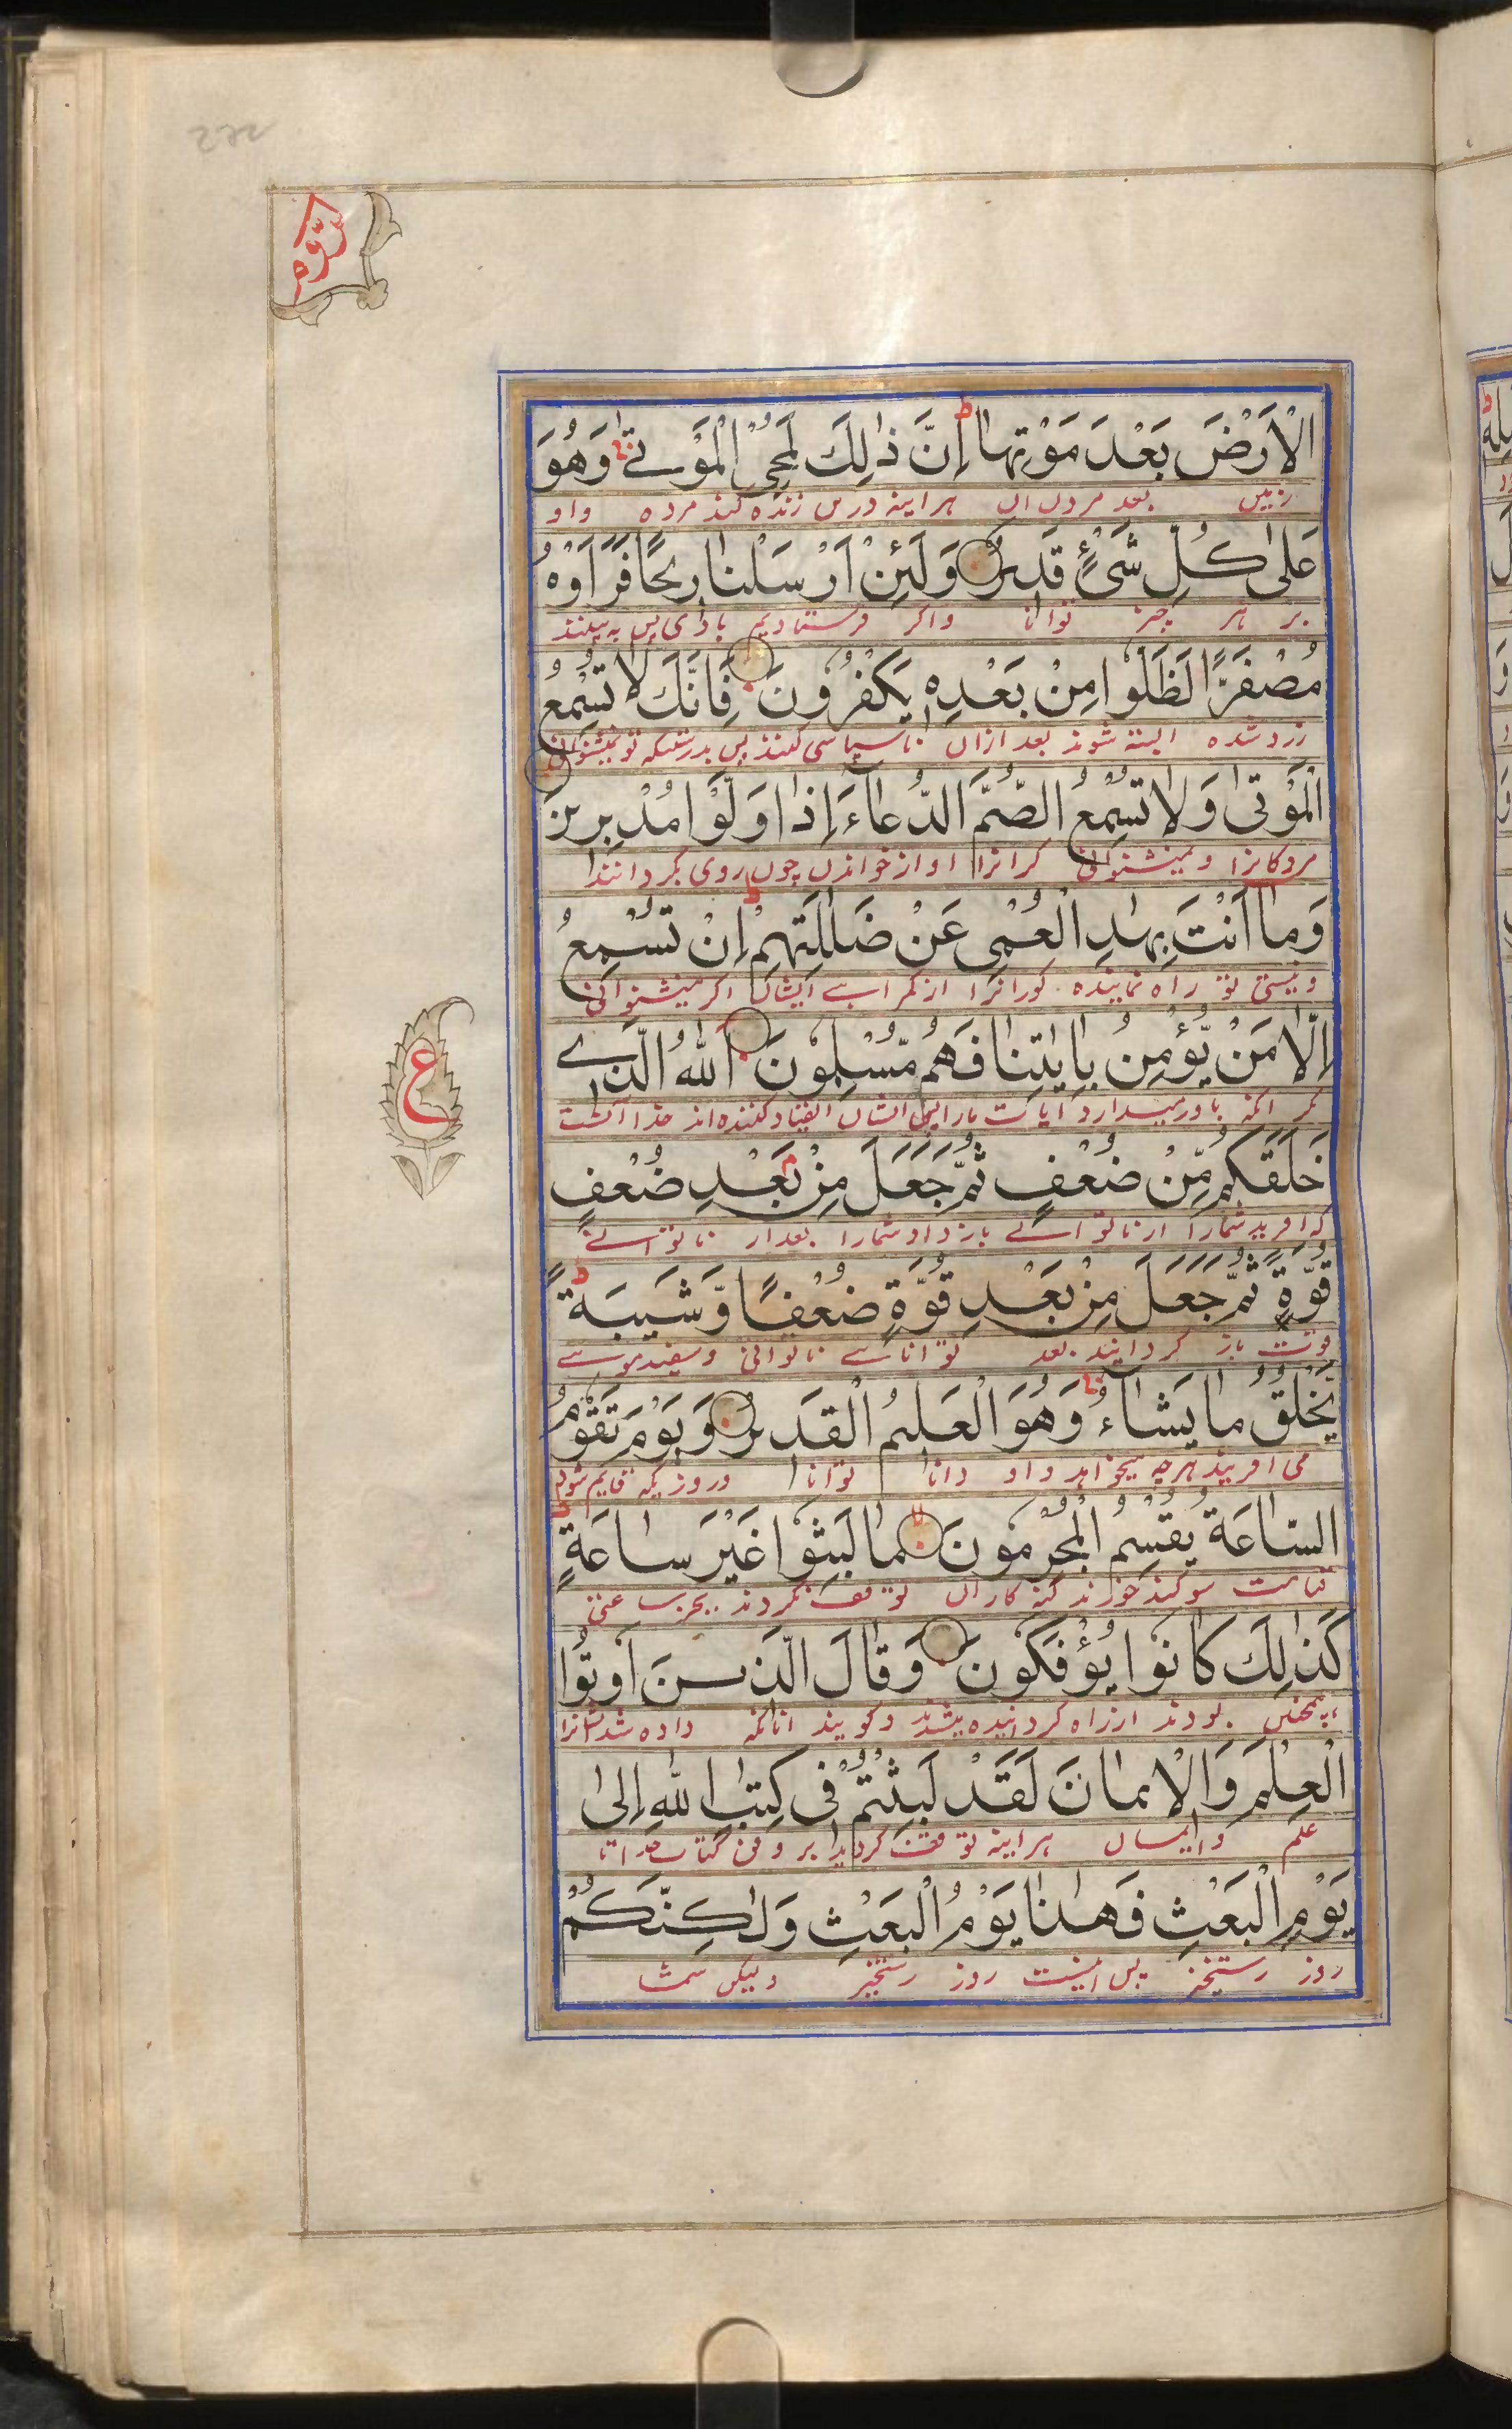 روم
الْاَرْضَ بَعْدَ مَوْتِهَا ط اِنَّ ذٰلِكَ لَمُحْيِ الْمَوْتٰى وَهُوَ
زمین بعد مردن آن هراینه درین زنده کند مرده واو
عَلٰى كُلِّ شَيْءٍ قَدِيْرٌ وَلَئِنْ اَرْسَلْنَا رِيْحًا فَرَاَوْهُ
بر هر چیز توانا واکر فرستادیم بادی پس به بینند
مُصْفَرًّا لَظَلُّوْا مِنْ بَعْدِهٖ يَكْفُرُوْنَ فَاِنَّكَ لَا تُسْمِعُ
زرد شده البته شوند بعد ازان ناسپاسی کنند پس بدرستیکه تو نمیشنوانی
الْمَوْتٰى وَلَا تُسْمِعُ الصُّمَّ الدُّعَاۤءَ اِذَا وَلَّوْا مُدْبِرِيْنَ
مردکانرا ونمیشنوانی کرانرا اواز خواندن چون روی بگردانند
وَمَا اَنْتَ بِهٰدِ الْعُمْيِ عَنْ ضَلٰلَتِهِمْ ط اِنْ تُسْمِعُ
ونیستی تو راه نماینده کورانرا از کمراهی ایشان اکر میشنوانی
اِلَّا مَنْ يُّؤْمِنُ بِاٰيٰتِنَا فَهُمْ مُّسْلِمُوْنَ اَللّٰهُ الَّذِيْ
مکر انکه باور میدارد ایات مارا پس ایشان انقیاد کننده اند خدا آنست
ع
خَلَقَكُمْ مِّنْ ضُعْفٍ ثُمَّ جَعَلَ مِنْۢ بَعْدِ ضُعْفٍ
که افرید شمارا از ناتوانی باز داد شمارا بعد از ناتوانی
قُوَّةً ثُمَّ جَعَلَ مِنْۢ بَعْدِ قُوَّةٍ ضُعْفًا وَّشَيْبَةً ط
قوت باز کردانید بعد توانائی ناتوانی وسفید موئی
يَخْلُقُ مَا يَشَاۤءُ وَهُوَ الْعَلِيْمُ الْقَدِيْرُ وَيَوْمَ تَقُوْمُ
می افریند هرچه میخواهد واو دانا توانا وروزیکه قایم شود
السَّاعَةُ يُقْسِمُ الْمُجْرِمُوْنَ لا مَا لَبِثُوْا غَيْرَ سَاعَةٍ ط
قیامت سوکند خورند کنه کاران توقف نکردند بجز ساعتی
كَذٰلِكَ كَانُوْا يُؤْفَكُوْنَ وَقَالَ الَّذِيْنَ اُوْتُوا
همچنین بودند از راه کردانیده میشدند وکویند انانکه داده شد ایشانرا
الْعِلْمَ وَالْاِيْمَانَ لَقَدْ لَبِثْتُمْ فِيْ كِتٰبِ اللّٰهِ اِلٰى
علم وایمان هراینه توقف کردید بر وفق کتاب خدا تا
يَوْمِ الْبَعْثِ فَهٰذَا يَوْمُ الْبَعْثِ وَلٰكِنَّكُمْ
روز رستخیز پس اینست روز رستخیز ولیکن شما